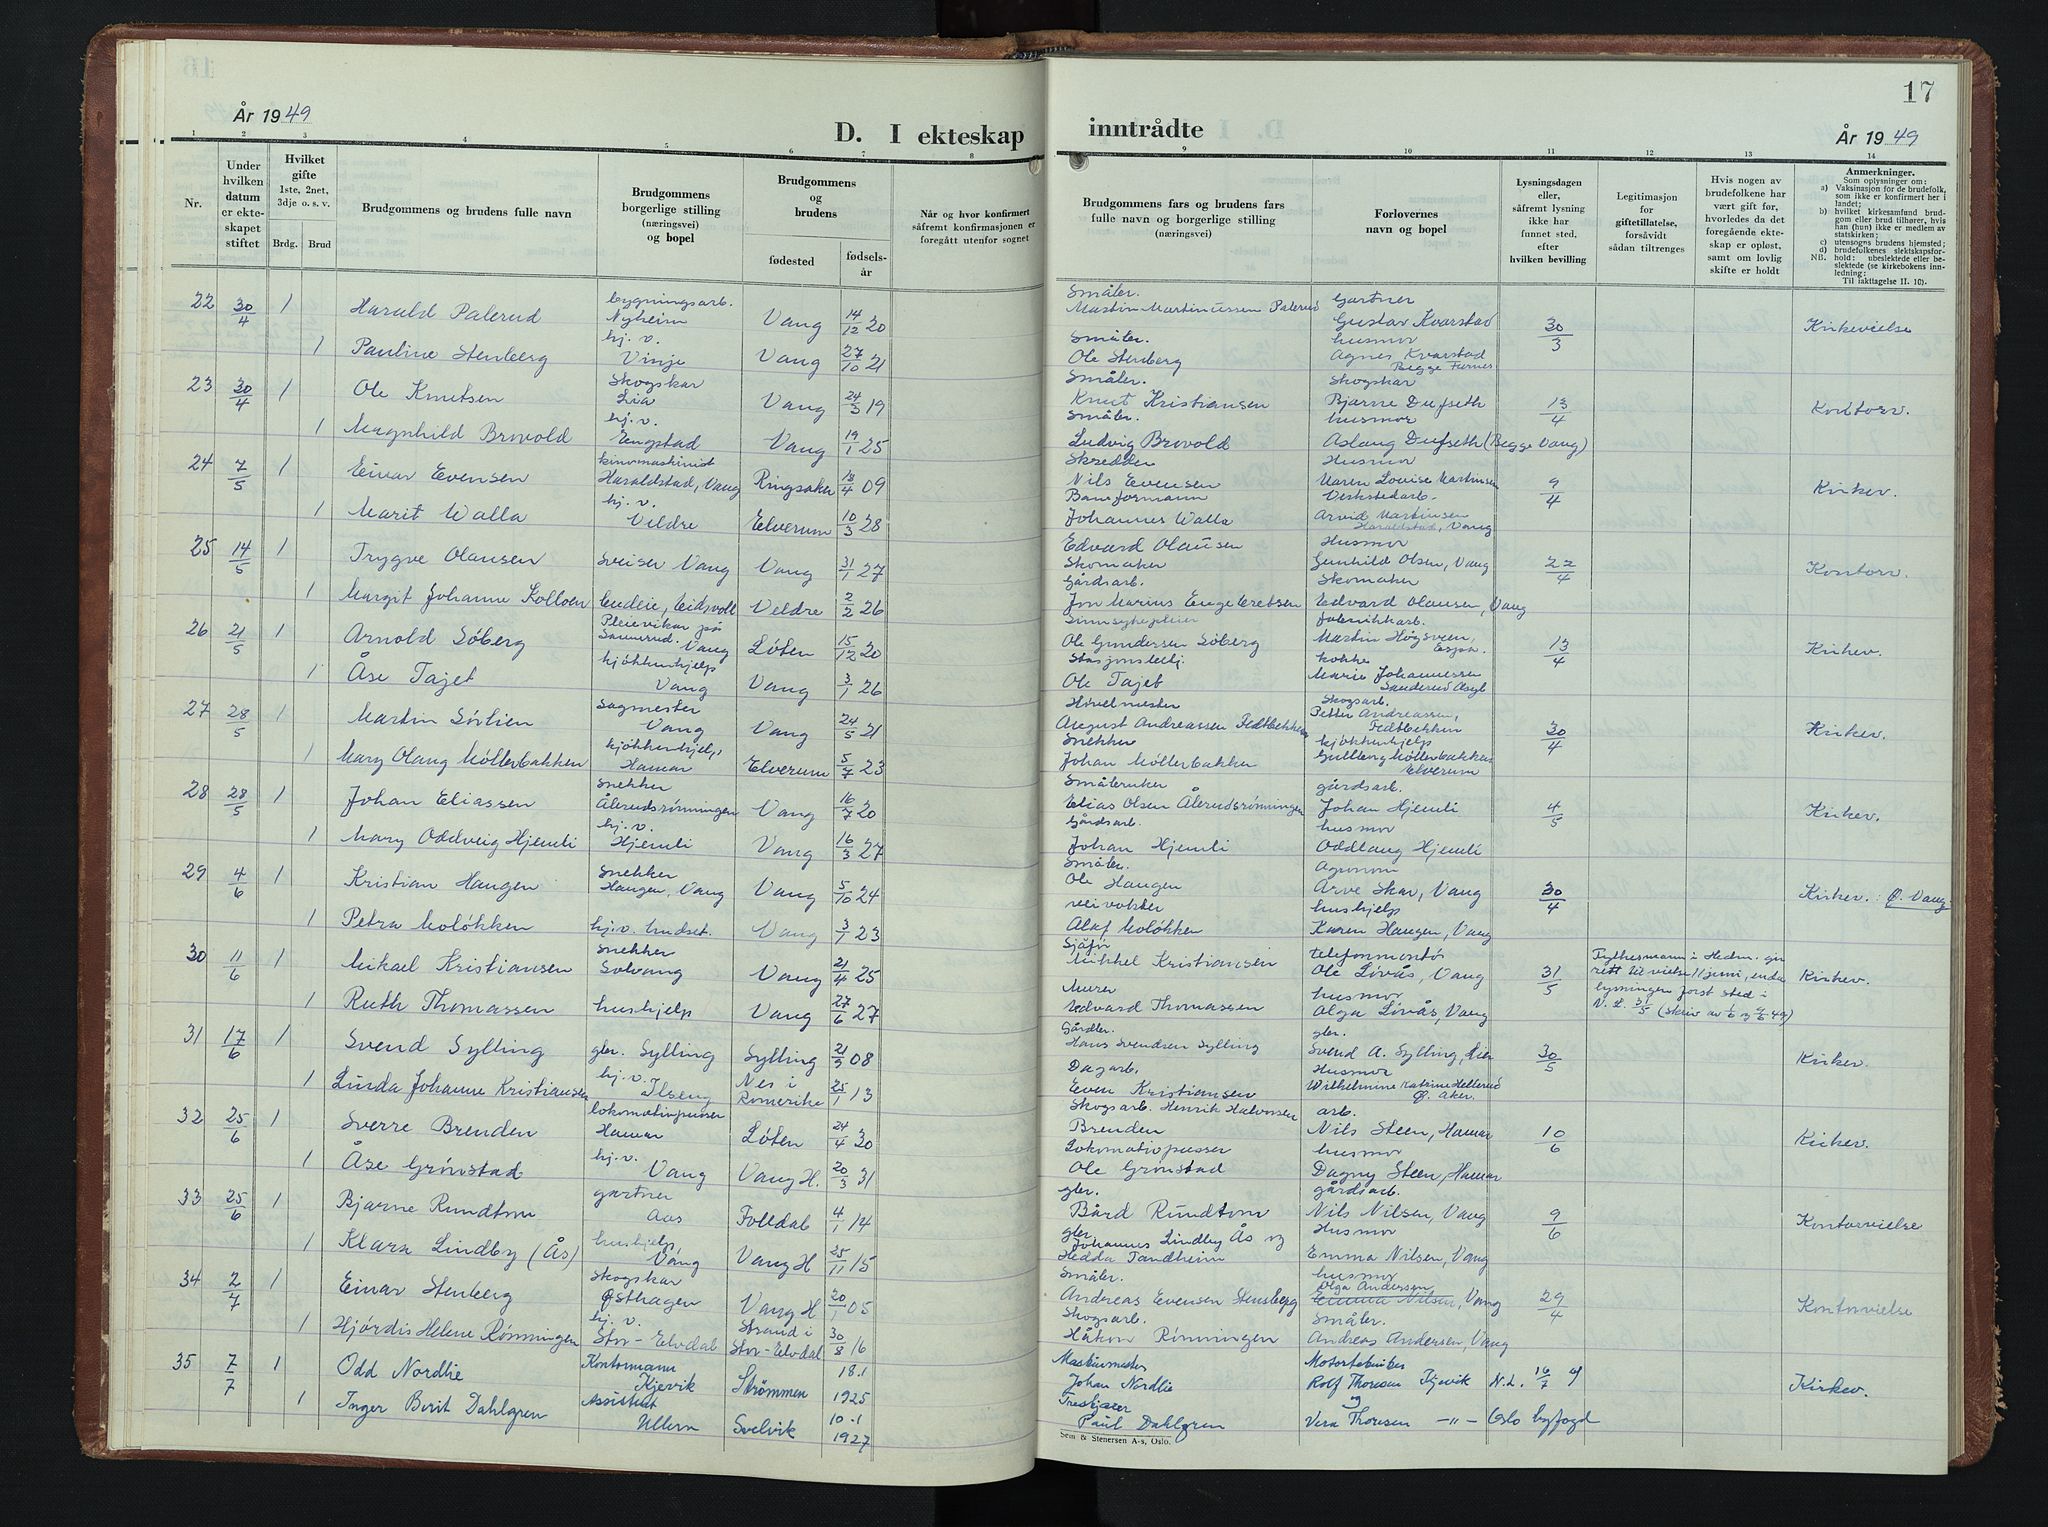 17
År 1949
D. I ekteskap inntrådte
År 1949
1 2 3 4 5 6 7 8 9 10 11 12 13 14
Nr.
Under hvilken datum er ekteskapet stiftet
Hvilket gifte 1ste, 2net, 3dje o. s. v.
Brdg. Brud
Brudgommens og brudens fulle navn
Brudgommens borgerlige stilling (næringsvei) og bopel
Brudgommens og brudens
fødested
fødselsår
Når og hvor konfirmert såfremt konfirmasjonen er foregått utenfor sognet
Brudgommens fars og brudens fars fulle navn og borgerlige stilling (næringsvei)
Forlovernes navn og bopel
Lysningsdagen eller, såfremt lysning ikke har funnet sted, efter hvilken bevilling
Legitimasjon for giftetillatelse, forsåvidt sådan tiltrenges
Hvis nogen av brudefolkene har vært gift før, hvorledes da det foregående ekteskap er opløst, samt om lovlig skifte er holdt
Anmerkninger.
Som oplysninger om:
a) Vaksinasjon for de brudefolk, som ikke er konfirmert her i landet;
b) hvilket kirkesamfund brudgom eller brud tilhører, hvis han (hun) ikke er medlem av statskirken;
c) utensogns brudens hjemsted;
d) brudefolkenes slektskapsforhold: ubeslektede eller beslektede (se kirkebokens innledning:
NB. Til iakttagelse II. 10).
22 30/4 1 Harald Palerud bygningsarb. Nyheim Vang 14/12 20 Småbr. Martin Martinussen Palerud Gartner Gustav Kvarstad 30/3 Kirkevielse
1 Pauline Stenberg hj. v. Vinje Vang 27/10 21 Småbr. Ole Stenberg husmor Agnes Kvarstad Begge Furnes
23 30/4 1 Ole Knutsen Skogskar Lia Vang 24/3 19 Småbr. Knut Kristiansen Skogskar Bjarne Dufseth 13/4 Kontorv.
1 Magnhild Brovold hj. v. Engstad Vang 19/1 25 Småbr. Ludvig Brovold husmor Aslaug Dufseth (Begge Vang)
24 7/5 1 Eivar Evensen kinomaskinist Haraldstad, Vang Ringsaker 18/4 09 Skredder Nils Evensen Husmor Maren Lovise Martinsen 9/4 Kirkev.
1 Marit Walla hj. v. Veldre Elverum 10/3 28 Baneformann Johannes Walla Verkstedarb. Arvid Martinsen Haraldstad, Vang
25 14/5 1 Trygve Olausen Sveiser Vang Vang 31/1 27 Edvard Olausen Skomaker Husmor Gunhild Olsen, Vang 22/4 Kontorv.
1 Margit Johanne Kolloen Eidsvoll Veldre 2/2 26 Gårdsarb. Jon Marius Engebretsen Skomaker Edvard Olausen, Vang
26 21/5 1 Arnold Søberg Pleievikar på Sanderud. Vang Løten 15/12 20 Sinnsykepleier Ole Gundersen Søberg fabrikkarb. Martin Høgsveen, Espa. 13/4 Kirkev.
1 Åse Tajet kjøkkenhjelp Vang Vang 3/1 26 Stasjonsbetj. Ole Tajet kokke Marie Johannessen Sanderud Asyl
27 28/5 1 Martin Sørlien Sagmester Vang Vang 24/5 21 Høvelmester August Andreassen Fedtbekken Skogsarb. Petter Andreassen, Fedtbekken 30/4 Kirkev.
1 Mary Olaug Møllerbakken kjøkkenhjelp, Hamar Elverum 5/7 23 Snekker Johan Møllerbakken kjøkkenhjelp Gullborg Møllerbakken Elverum
28 28/5 1 Johan Eliassen Snekker Ålerudsrønningen Vang 16/7 20 Småbruker Elias Olsen Ålerudsrønningen gårdsarb. Johan Hjemli 4/5 Kirkev.
1 Mary Oddveig Hjemli hj. v. Hjemli Vang 16/3 27 Gårdsarb. Johan Hjemli husmor Oddlaug Hjemli
29 4/6 1 Kristian Haugen Snekker Haugen, Vang Vang 5/10 24 Småbr. Ole Haugen Agronom Arve Skar, Vang 30/4 Kirkev. : Ø. Vang.
1 Petra Moløkken hj. v. Lundset. Vang 3/1 23 veivokter Alaf Moløkken hushjelp Karen Haugen, Vang
30 11/6 1 Mikael Kristiansen Snekker Solvang Vang 21/4 25 Sjåfør Mikkel Kristiansen telefonmontør Ole Løvås, Vang 31/5 Fylkesmann i Hedm. gir rett til vielse 11 juni, enda lysningen først sted i V. d. 31/5 (skriv av 1/6 og 9/6 49) Kirkev.
1 Ruth Thomassen hushjelp Vang 27/6 27 Murer Edvard Thomassen husmor Olga Løvås, Vang
31 17/6 1 Svend Sylling gbr. Sylling Sylling 21/3 08 Gårdbr. Hans Svendsen Sylling gbr. Svend A. Sylling, Lier 30/5 Kirkev.
1 Linda Johanne Kristiansen hj. v. Ilseng Nes i Romerike 25/1 13 Dagarb. Even Kristiansen Husmor Wilhelmine Katrine Hellerud Ø. Aker.
32 25/6 1 Sverre Brenden lokomotivpusser Hamar Løten 24/4 30 Skogsarb. Henrik Halvorsen Brenden arb. Nils Steen, Hamar 10/6 Kirkev.
1 Åse Grønstad hj. v. Vang Vang H. 20/3 31 Lokomotivpusser Ole Grønstad husmor Dagny Steen, Hamar
33 25/6 1 Bjarne Rundtom gartner Aas Folldal 4/1 14 gbr. Bård Rundtom gårdsarb. Nils Nilsen, Vang 9/6 Kontorvielse
1 Klara Lindby (Ås) hushjelp, Vang Vang H 25/11 15 gbr. Johannes Lindby Ås og Hedda Tandheim Husmor Emma Nilsen, Vang
34 2/7 1 Einar Stenberg Skogskar Østhagen Vang H. 20/1 05 Småbr. Andreas Evensen Stensberg husmor Olga Andersen Emma Nilsen, Vang 29/4 Kontorvielse
1 Hjørdis Helene Rønningen hj. v. Stor-Elvdal Strand i Stor-Elvdal 30/8 16 Skogsarb. Håkon Rønningen Småbr. Andreas Andersen, Vang
35 7/7 1 Odd Nordlie Kontormann Kjevik Strømmen 18.1 1925 Maskinmester Johan Nordlie Motortekniker Rolf Thoresen Kjevik N.L. 16/7 Kirkev.
1 Inger Berit Dahlgren Assistent Ullern Svelvik 10.1 1927 Paul Dahlgren og Vera Thoresen -"- Oslo byfogd
Sem & Stenersen A-s, Oslo.